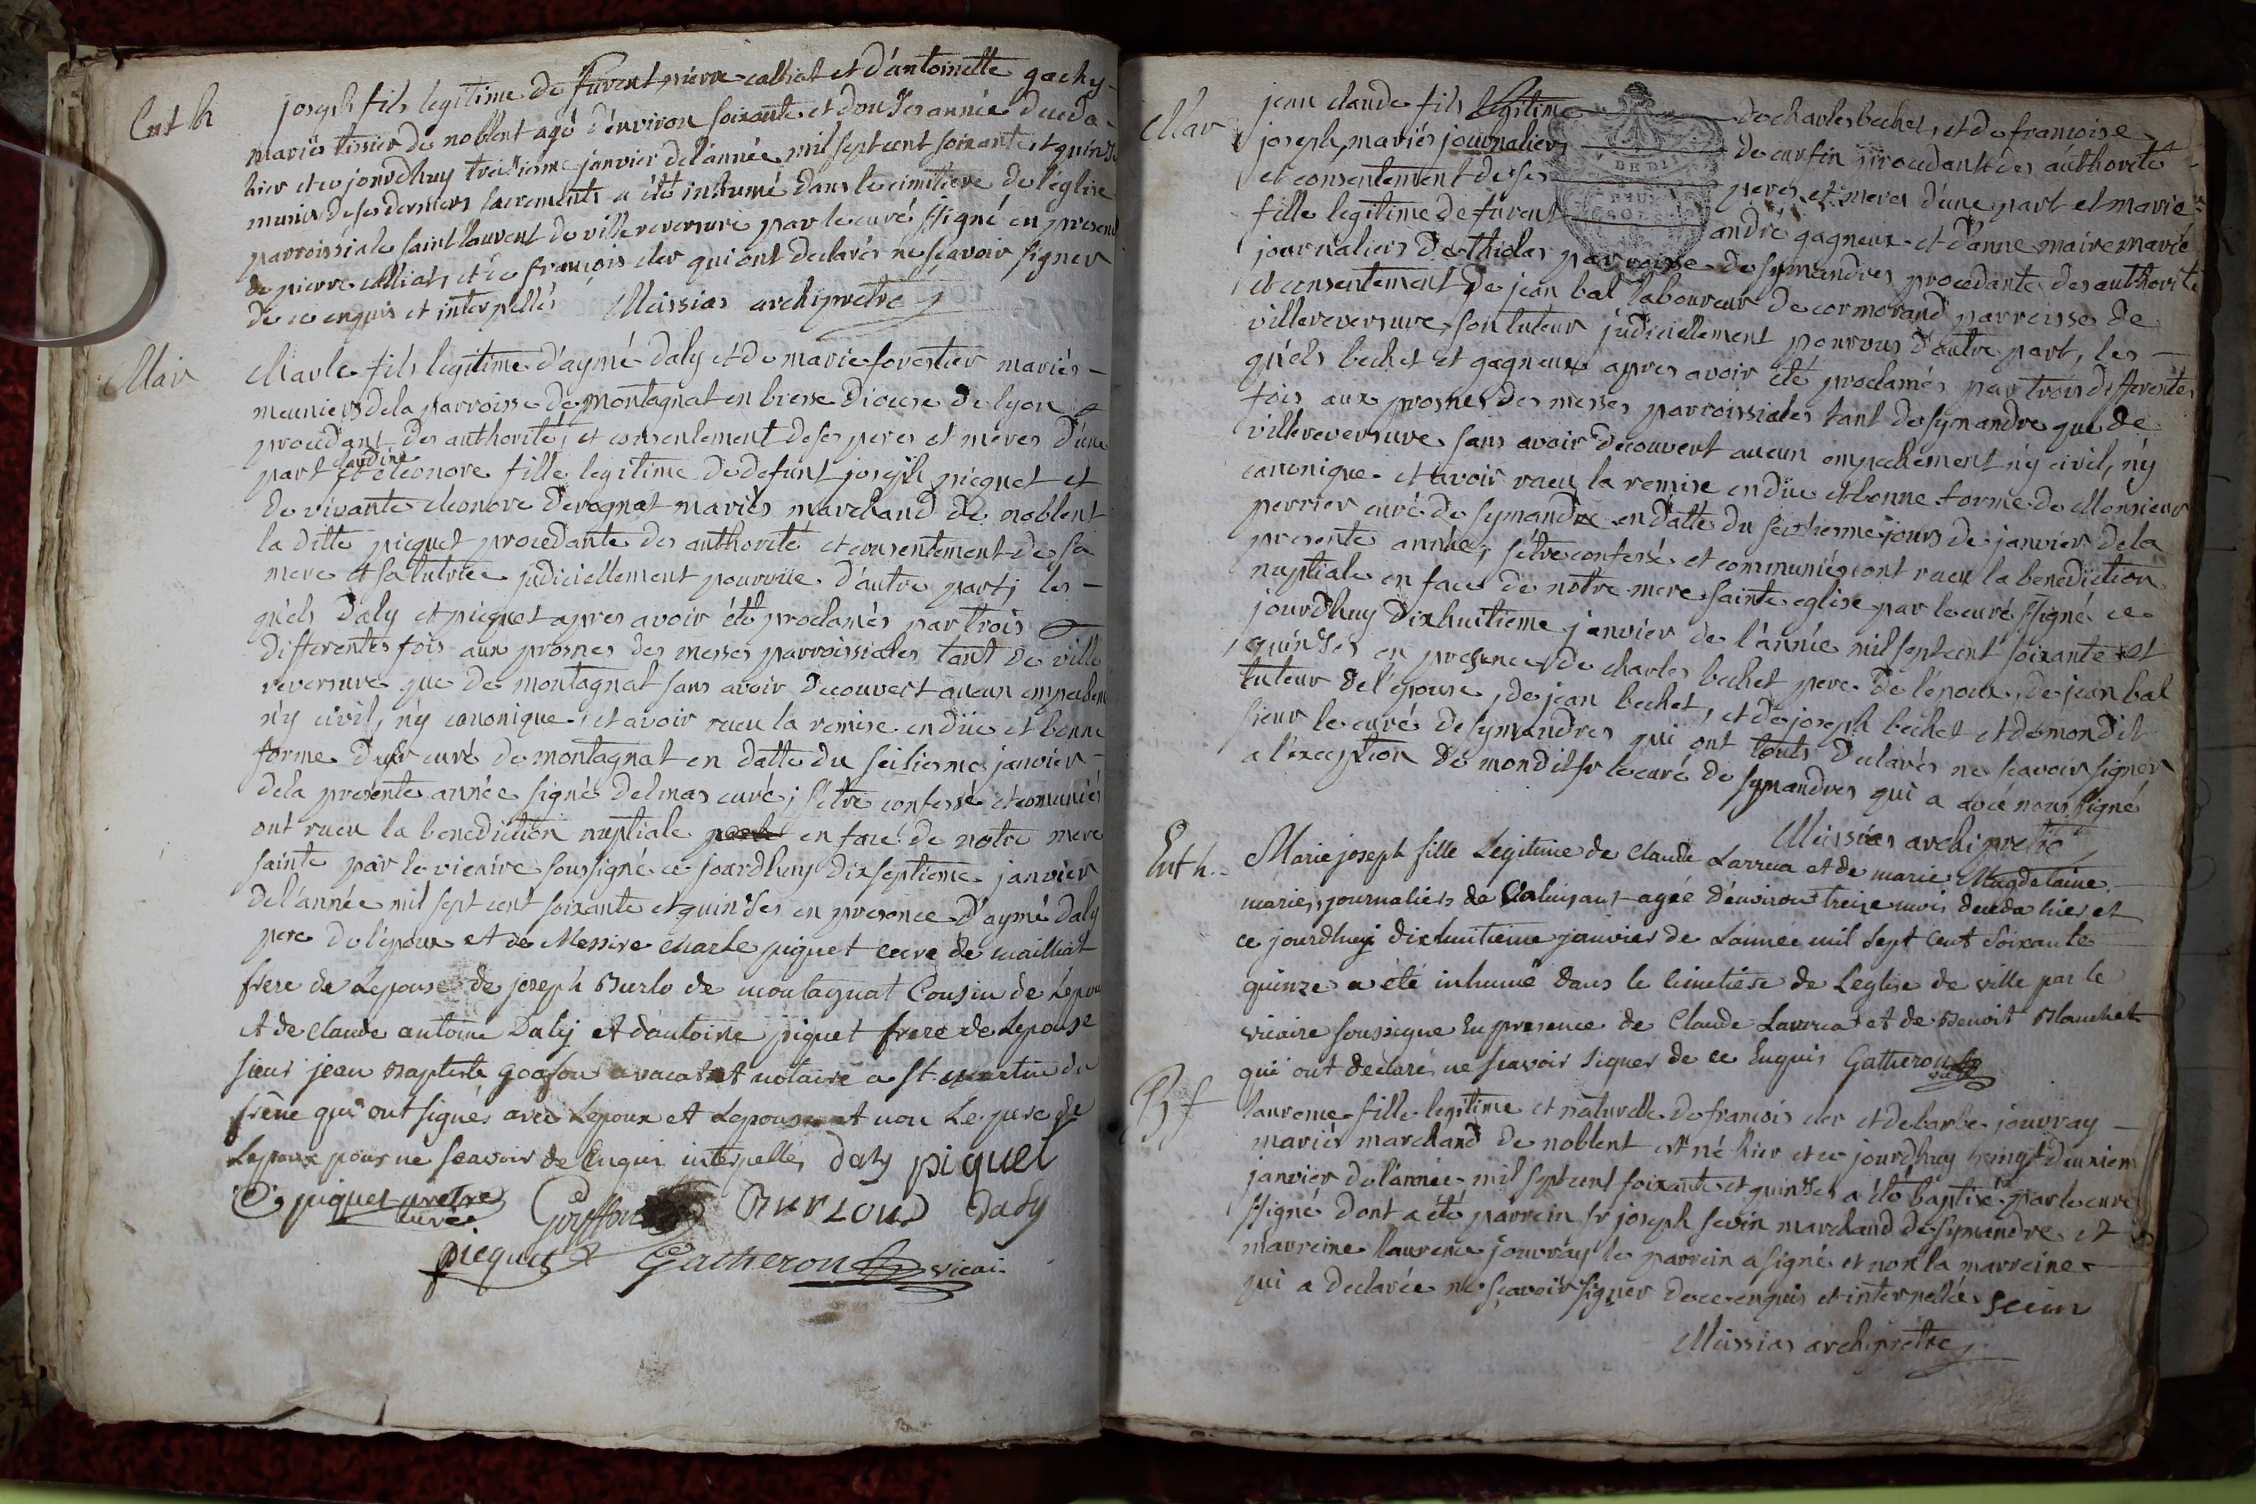 Ent h
joseph fils legitime de furent pierre calliat et d'antoinette gachy
mariés tissier de noblent agé d'environ soixante et douses année deceda
hier et ce jourdhuy treisieme janvier de l'année mil sept cent soixante et quinses
munis de ses derniers sacrements a été inhumé dans le cimitiere de l'église
parroissiale saint laurent de villereversure par le curé ssigné en presence
de pierre calliat, et de françois cler qui ont declarés ne sçavoir signer
de ce enquis et interpellés Missias archipretre
Mar
Charle fils legitime d'aymé daly et de marie forestier mariés
meuniers de la parroisse de montagnat en bresse diocese de lyon
procedant des authorités et consentement de ses peres et meres d'une
part et claudine eleonore fille legitime de defunt joseph picquet et
de vivante eleonore derognat mariés marchand de noblent
la ditte picquet procedante des authorité et consentement de sa
mere et sa tutrice judiciellement pourvüe d'autre part; les
quels daly et picquet apres avoir été proclamés par trois
differentes fois aux prosnes des messes parroissiales tant de ville
reversure que de montagnat sans avoir decouvert aucun empechem
n'y civil, n'y canonique, et avoir receu la remise en düe et bonne
forme du sr curé de montagnat en datte du seisieme janvier
de la presente année signé delmas curé; s'etre confessé et comuniés
ont receu la benediction nuptiale en face de notre mere
sainte par le vicaire soussigné ce jourdhuy dixseptieme janvier
de l'année mil sept cent soixante et quinses en presence d'aymé daly
pere de l'epoux et de Messire charle piquet cure de mailliat
frere de Lepouse de joseph Burlo de montagnat Cousin de Lepoux
et de Claude antoine Daly et d'antoine piquet frere de Lepouse
sieur jean Baptiste avocat et notaire a st martin du
frêne qui ont signés avec Lepoux et Lepouse et non Le pere de
Lepoux pour ne sçavoir de Enquis interpellés Daly piquet
C. piquet pretre curé BURLOUD Daly
picquet Gatheron vicai.
Mar
jean claude fils legitime de charles bechet, et de francoise
joseph mariés journaliers de curfin procedant des authorité
et consentement de ses peres et meres d'une part et marie
fille legitime de furent andré gagneux et d'anne maire mariés
journaliers de thiolas parroisse de symandres procedante des authorité
et consentement de jean bal laboureur de cormorand parroisse de
villereversure son tuteur judiciellement pourvus d'autre part, les
quels bechet et gagneux apres avoir été proclamés par trois differentes
fois aux prosnes des messes parroissiales tant de symandre que de
villereversure sans avoir decouvert aucun empechement n'y civil, n'y
canonique et avoir receu la remise en düe et bonne forme de Monsieur
perrier curé de symandre en datte du seizieme jours de janvier de la
presente année, s'etre confessé et communiés ont receu la benediction
nuptiale en face de notre mere sainte eglise par le curé ssigné ce
jourdhuy dixhuitieme janvier de l'année mil sept cent soixante et
quinses en presence de charles bechet pere de l'epoux, de jean bal
tuteur de l'epouse, de jean bechet, et de joseph bechet et de mondit
sieur le curé de symandres qui ont touts declarés ne scavoir signer
a l'exception de mondit sr le curé de symandres qui a avec nous signé
Missias archipretre
Ent h.
Marie joseph fille Legitime de Claude Larrua et de marie Magdelaine
mariés journaliers de agée d'environ treize mois deceda hier et
ce jourdhuy dixhuitieme janvier de Lannée mil sept Cent Soixante
quinze a été inhumé dans le Cimetiere de Leglise de ville par le
vicaire soussigne En presence de Claude Larrua et de Benoit Blanchet
qui ont declaré ne scavoir signer de ce Enquis Gatheron vic
B f
laurence fille legitime et naturelle de francois cler et de barbe jouvray
mariés marchand de noblent est né hier et ce jourdhuy vingt deuxiem
janvier de l'année mil sept cent soixante et quinses a été baptisé par le curé
ssigné dont a été parrein sr joseph sevin marchand de symandre et
marreine laurence jouvray le parrein a signé et non la marreine
qui a declarée ne sçavoir signer de ce enquis et interpellés Sevin
Missias archiprêtre